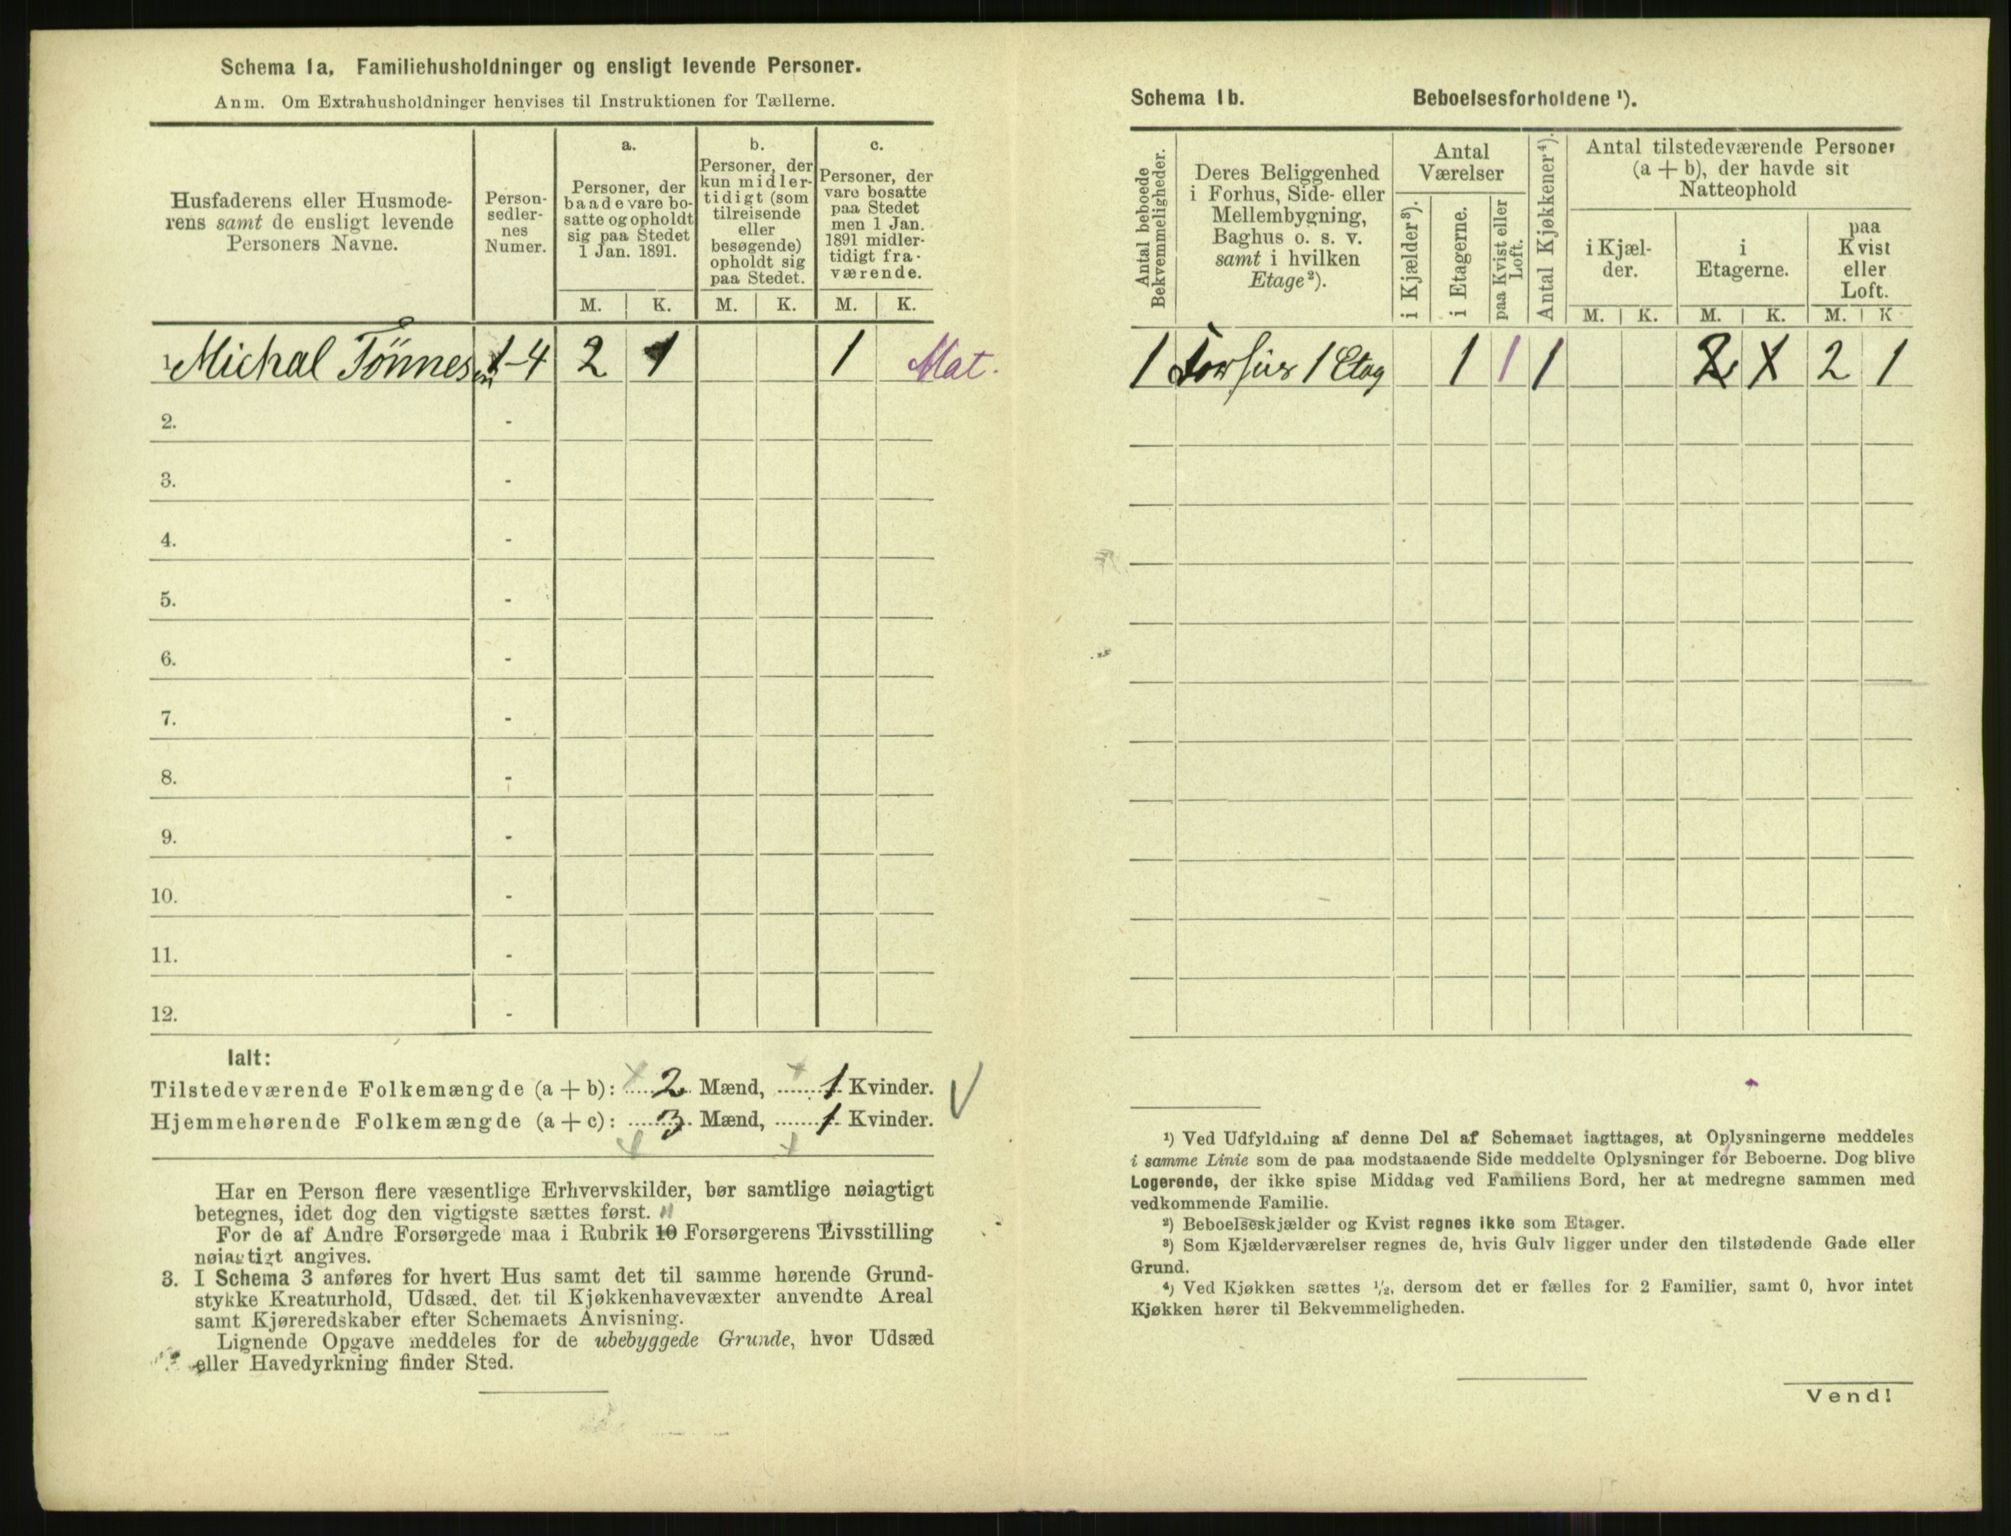 Schema 1a. Familiehusholdninger og ensligt levende Personer.
Anm. Om Extrahusholdninger henvises til Instruktionen for Tællerne.
Husfaderens eller Husmode-
rens samt de ensligt levende
Personers Navne.
Person-
sedler-
nes
Numer.
a.
Personer, der
baade vare bo-
satte og opholdt
sig paa Stedet
1 Jan. 1891.
b.
Personer, der
kun midler-
tidigt (som
tilreisende
eller
besøgende)
opholdt sig
paa Stedet.
c.
Personer, der
vare bosatte
paa Stedet
men 1 Jan.
1891 midler-
tidigt fra-
værende.
M. K. M. K. M. K.
1. Michal Tönnesen 1-4 2 1 1 Mat.
2. -
3. -
4. -
5. -
6. -
7. -
8. -
9. -
10. -
11. -
12. -
Ialt:
Tilstedeværende Folkemængde (a + b): 2 Mænd, 1 Kvinder.
Hjemmehørende Folkemængde (a + c): 3 Mænd, 1 Kvinder.
Har en Person flere væsentlige Erhvervskilder, bør samtlige nøiagtigt
betegnes, idet dog den vigtigste sættes først.
For de af Andre Forsørgede maa i Rubrik 10 Forsørgerens Livsstilling
nøiagtigt angives.
3. I Schema 3 anføres for hvert Hus samt det til samme hørende Grund-
stykke Kreaturhold, Udsæd, det til Kjøkkenhavevæxter anvendte Areal
samt Kjøreredskaber efter Schemaets Anvisning.
Lignende Opgave meddeles for de ubebyggede Grunde, hvor Udsæd
eller Havedyrkning finder Sted.
Schema 1b. Beboelsesforholdene ¹).
Antal beboede
Bekvemmeligheder.
Deres Beliggenhed
i Forhus, Side- eller
Mellembygning,
Baghus o. s. v.
samt i hvilken
Etage²).
Antal
Værelser
i Kjælder³).
i Etagerne.
paa Kvist eller
Loft.
Antal Kjøkkener⁴).
Antal tilstedeværende Personer
(a + b), der havde sit
Natteophold
i Kjæl-
der.
i
Etagerne.
paa
Kvist
eller
Loft.
M. K. M. K. M. K
1 Forhus 1 Etag 1 1 1 2 1 2 1
¹) Ved Udfyldning af denne Del af Schemaet iagttages, at Oplysningerne meddeles
i samme Linie som de paa modstaaende Side meddelte Oplysninger for Beboerne. Dog blive
Logerende, der ikke spise Middag ved Familiens Bord, her at medregne sammen med
vedkommende Familie.
²) Beboelseskjælder og Kvist regnes ikke som Etager.
³) Som Kjælderværelser regnes de, hvis Gulv ligger under den tilstødende Gade eller
Grund.
⁴) Ved Kjøkken sættes ½, dersom det er fælles for 2 Familier, samt 0, hvor intet
Kjøkken hører til Bekvemmeligheden.
Vend!